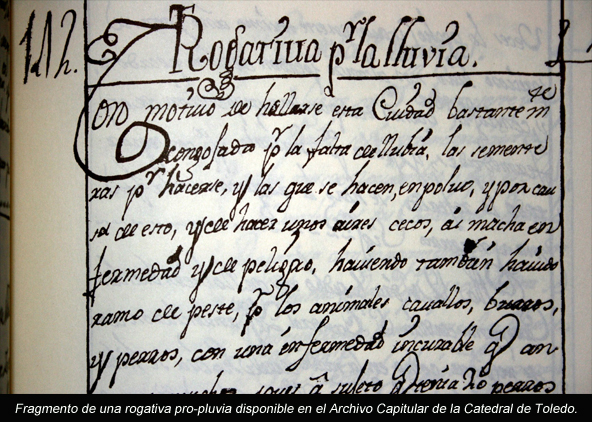 Rogativa pr. la lluvia.
Con motivo de hallarse esta Ciudad bastantemte
acongojada pr la falta de llubia, las semente
ras pr hacerse, y las que se hacen, en polvo, y por cau
sa de esto, y de hacer unos aires cecos, ai mucha en
fermedad y de peligro, haviendo tambien havido
ramo de peste, pr los animales cavallos, burros,
y perros, con una enfermedad incurable q an
perros
Fragmento de una rogativa pro-pluvia disponible en el Archivo Capitular de la Catedral de Toledo.